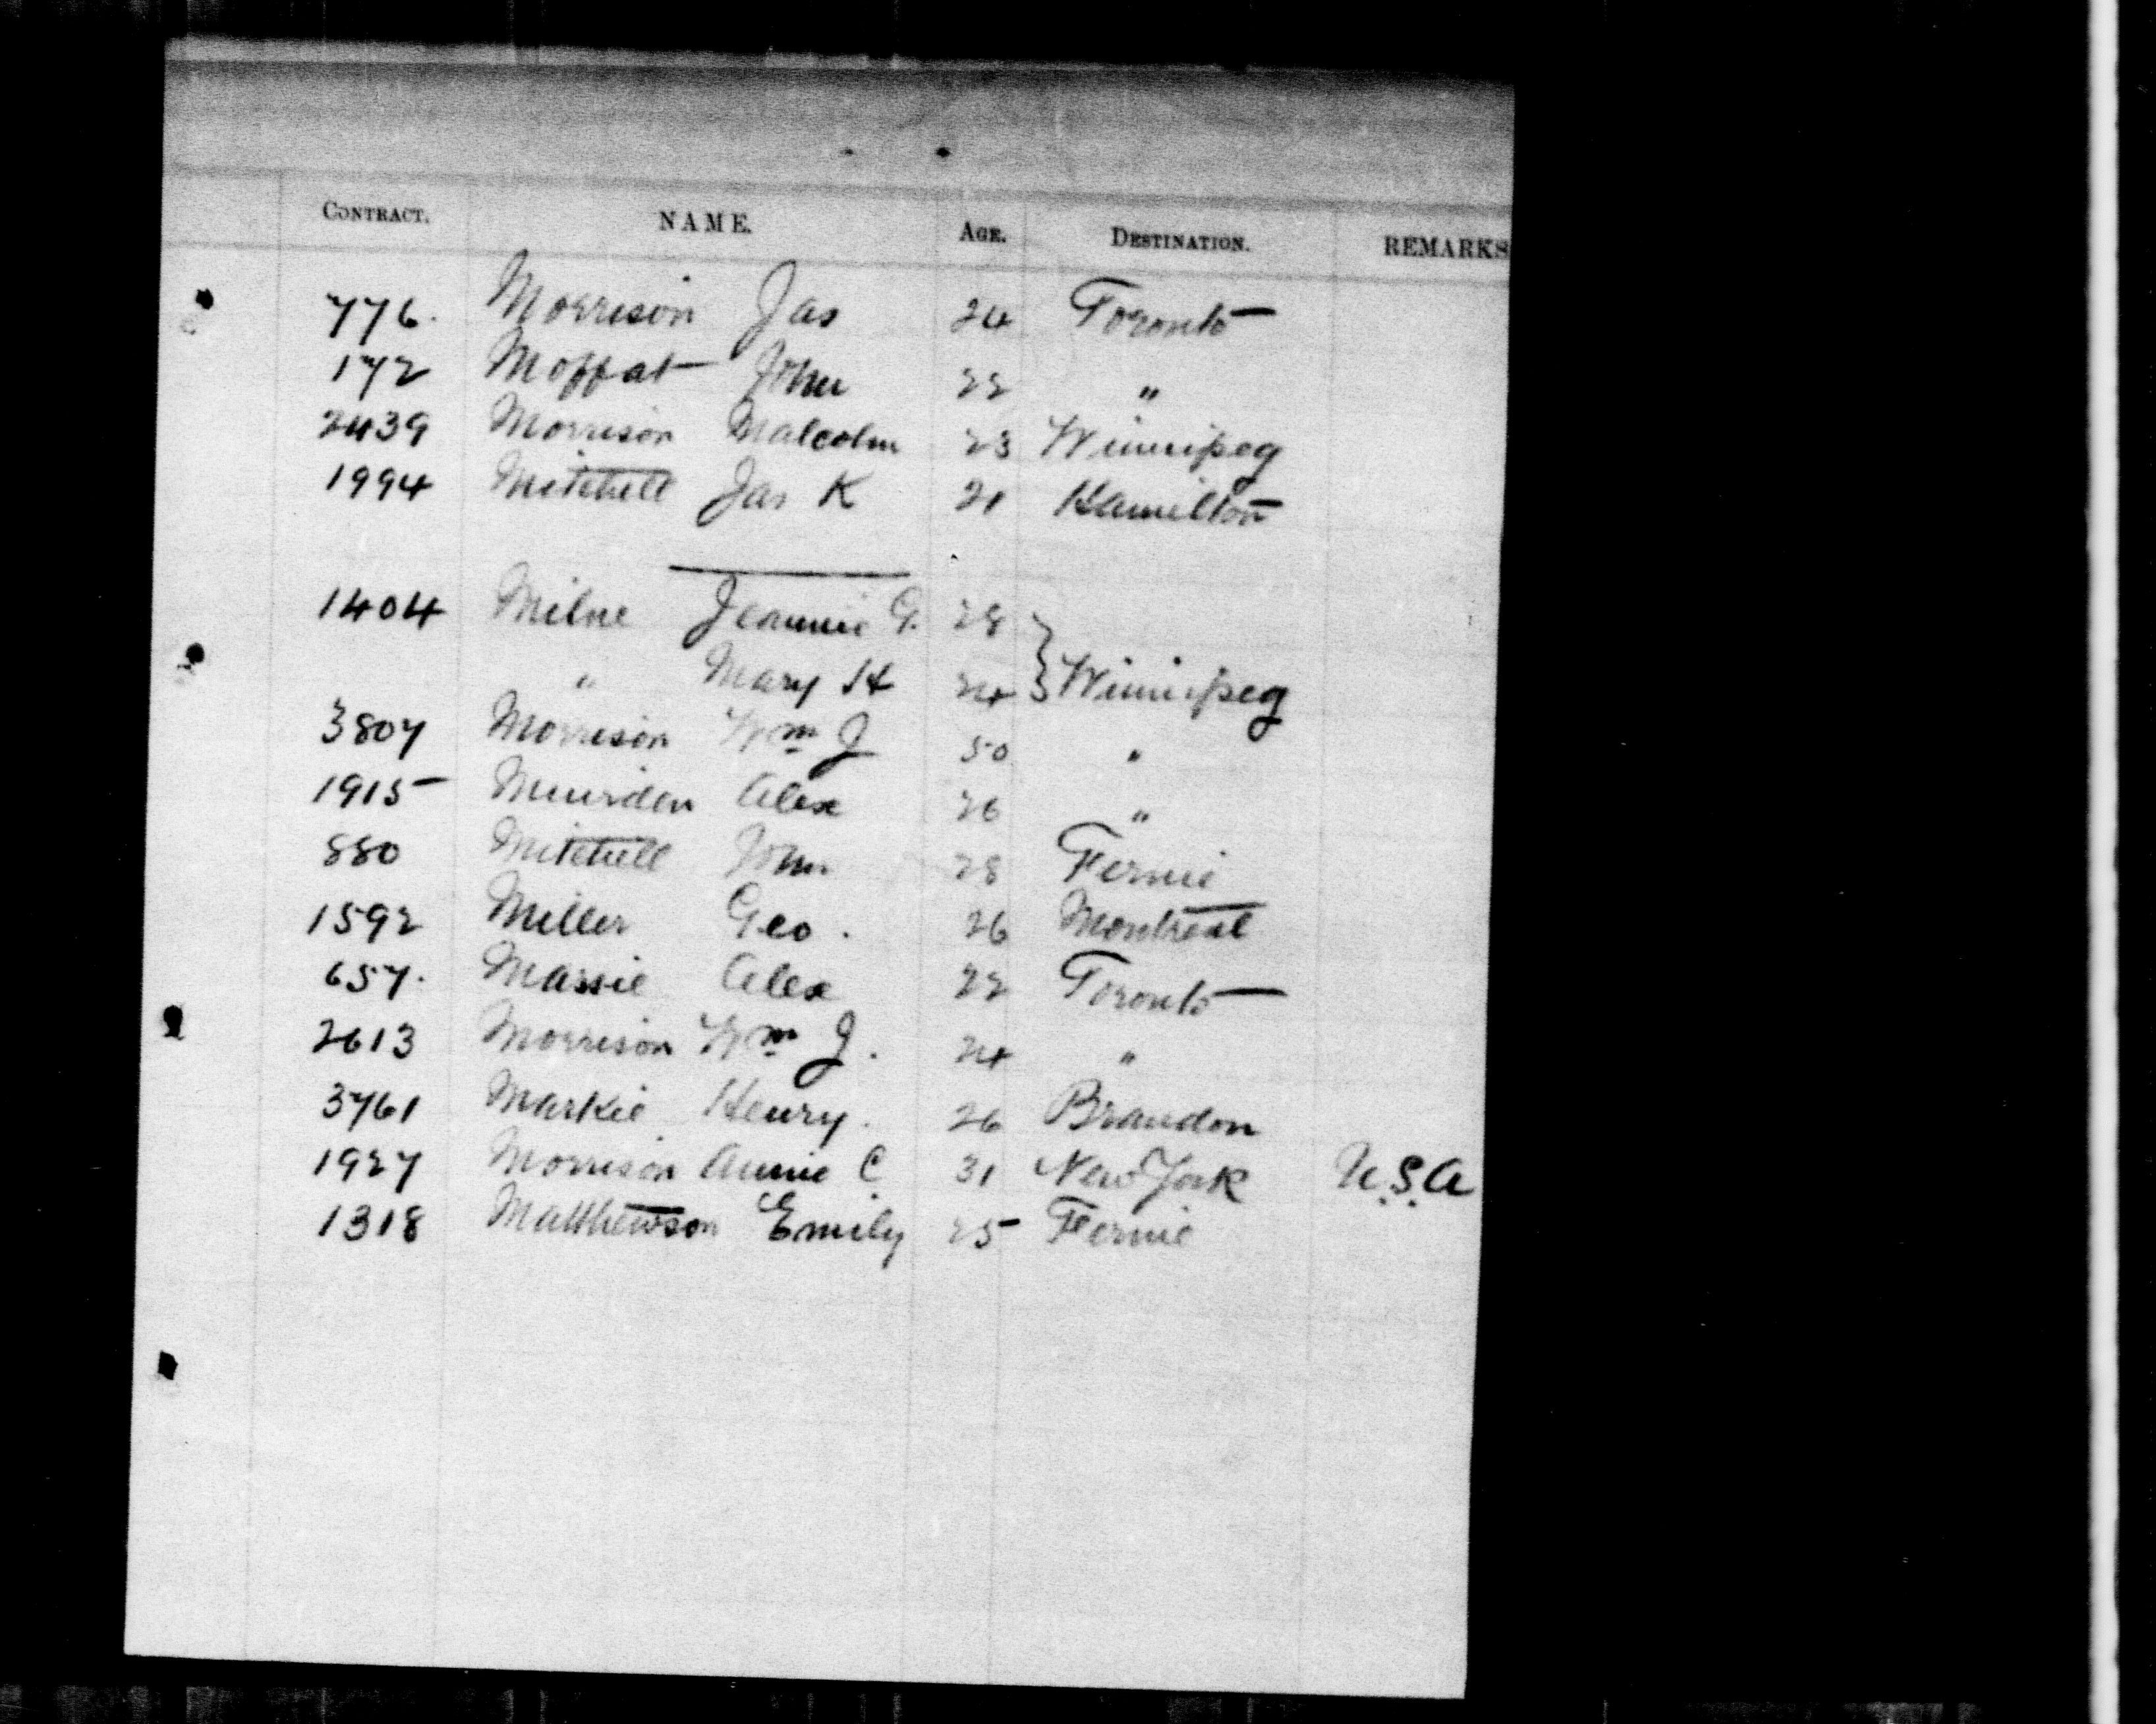 CONTRACT. NAME. AGE. DESTINATION. REMARKS
776. Morrison Jas 24 Toronto
172 Moffat John 22 "
2439 Morrison Malcolm 23 Winnipeg
1994 Mitchell Jas K 21 Hamilton
1404 Milne Jeannie G. 28
" Mary H 24 } Winnipeg
3807 Morrison Wm J 50 "
1915 Muirden Alex 26 "
880 Mitchell John 28 Fernie
1592 Miller Geo. 26 Montreal
657. Massie Alex 22 Toronto
2613 Morrison Wm J. 24 "
3761 Markie Henry. 26 Brandon
1927 Morrison Annie C 31 New York U.S.A
1318 Matthewson Emily 25 Fernie